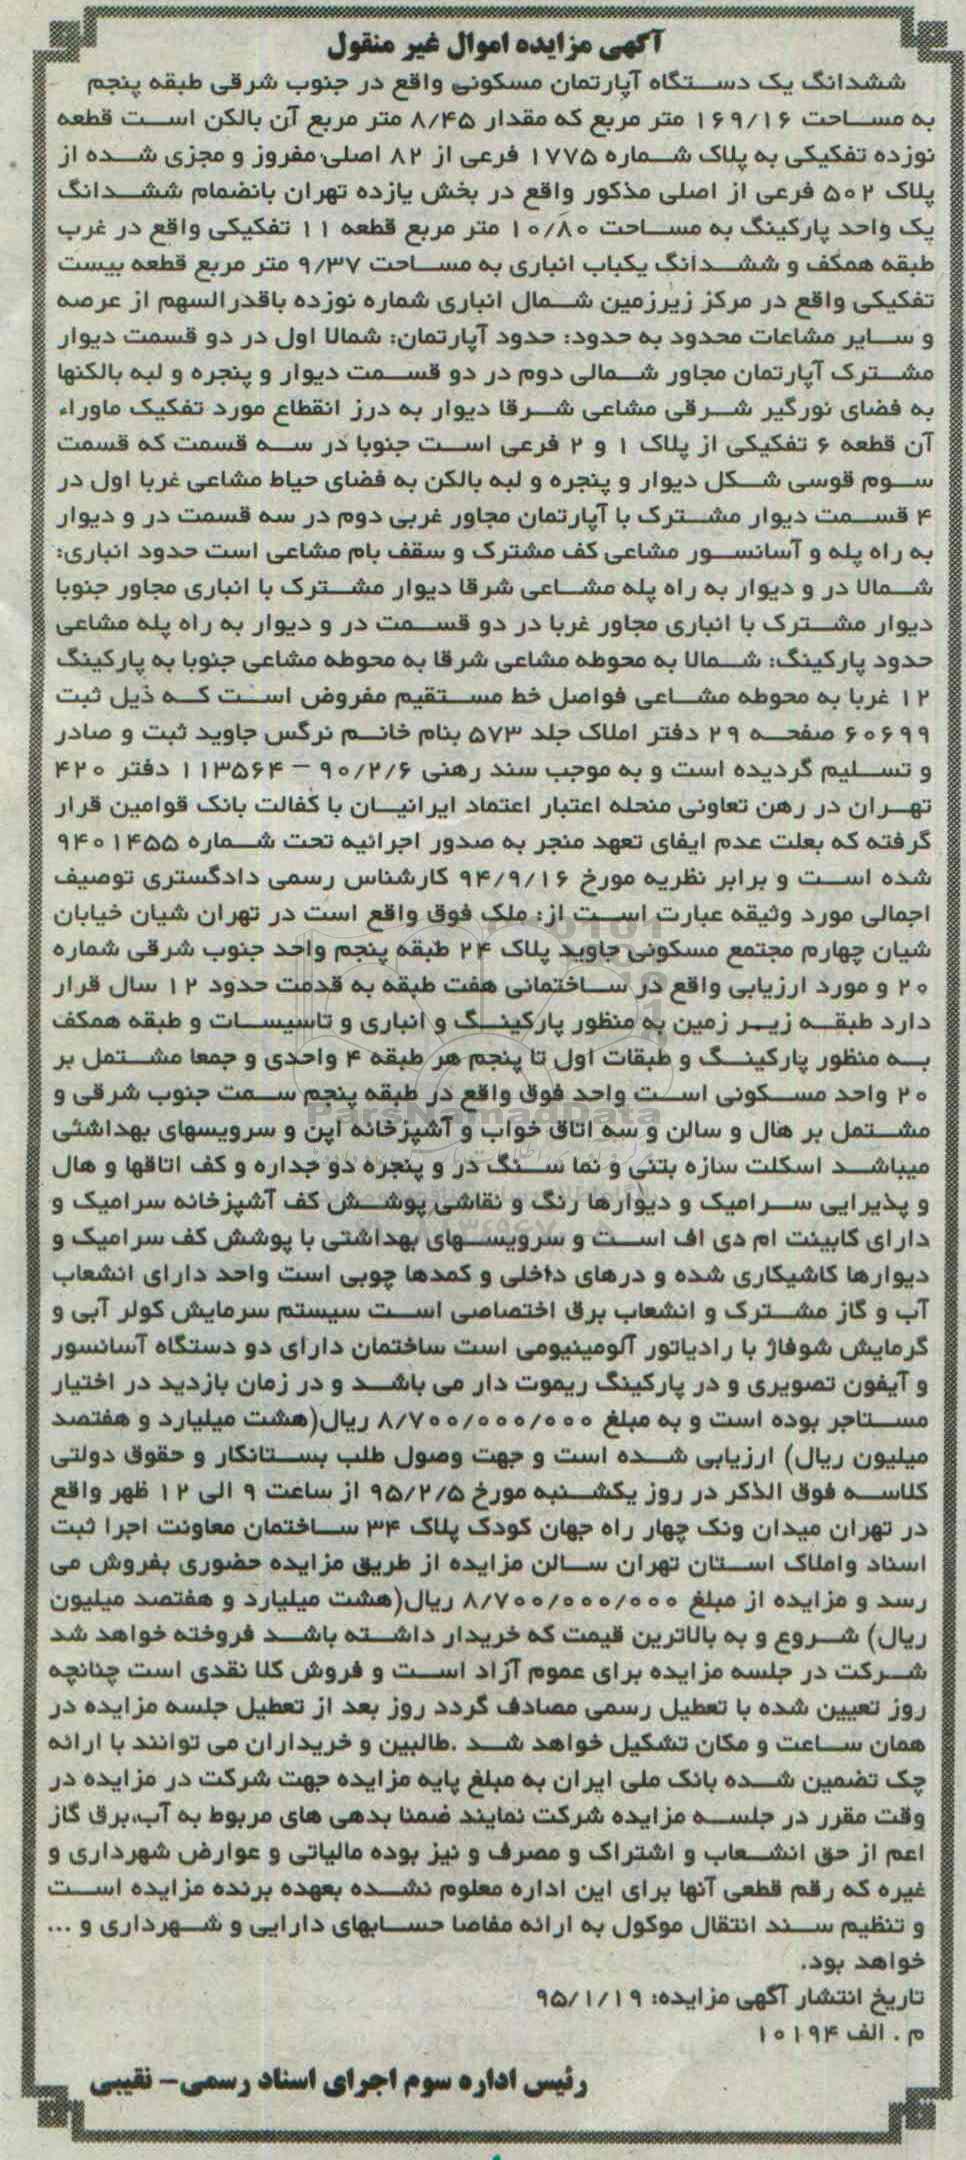 آگهی مزایده اموال غیر منقول
ششدانگ یک دستگاه آپارتمان مسکونی واقع در جنوب شرقی طبقه پنجم
به مساحت ۱۶۹/۱۶ متر مربع که مقدار ۸/۴۵ متر مربع آن بالکن است قطعه
نوزده تفکیکی به پلاک شماره ۱۷۷۵ فرعی از ۸۲ اصلی مفروز و مجزی شده از
پلاک ۵۰۲ فرعی از اصلی مذکور واقع در بخش یازده تهران بانضمام ششدانگ
یک واحد پارکینگ به مساحت ۱۰/۸۰ متر مربع قطعه ۱۱ تفکیکی واقع در غرب
طبقه همکف و ششدانگ یکباب انباری به مساحت ۹/۳۷ متر مربع قطعه بیست
تفکیکی واقع در مرکز زیرزمین شمال انباری شماره نوزده باقدرالسهم از عرصه
و سایر مشاعات محدود به حدود: حدود آپارتمان: شمالا اول در دو قسمت دیوار
مشترک آپارتمان مجاور شمالی دوم در دو قسمت دیوار و پنجره و لبه بالکنها
به فضای نورگیر شرقی مشاعی شرقا دیوار به درز انقطاع مورد تفکیک ماوراء
آن قطعه ۶ تفکیکی از پلاک ۱ و ۲ فرعی است جنوبا در سه قسمت که قسمت
سوم قوسی شکل دیوار و پنجره و لبه بالکن به فضای حیاط مشاعی غربا اول در
۴ قسمت دیوار مشترک با آپارتمان مجاور غربی دوم در سه قسمت در و دیوار
به راه پله و آسانسور مشاعی کف مشترک و سقف بام مشاعی است حدود انباری:
شمالا در و دیوار به راه پله مشاعی شرقا دیوار مشترک با انباری مجاور جنوبا
دیوار مشترک با انباری مجاور غربا در دو قسمت در و دیوار به راه پله مشاعی
حدود پارکینگ: شمالا به محوطه مشاعی شرقا به محوطه مشاعی جنوبا به پارکینگ
۱۲ غربا به محوطه مشاعی فواصل خط مستقیم مفروض است که ذیل ثبت
۶۰۶۹۹ صفحه ۲۹ دفتر املاک جلد ۵۷۳ بنام خانم نرگس جاوید ثبت و صادر
و تسلیم گردیده است و به موجب سند رهنی ۹۰/۲/۶ – ۱۱۳۵۶۴ دفتر ۴۲۰
تهران در رهن تعاونی منحله اعتبار اعتماد ایرانیان با کفالت بانک قوامین قرار
گرفته که بعلت عدم ایفای تعهد منجر به صدور اجرائیه تحت شماره ۹۴۰۱۴۵۵
شده است و برابر نظریه مورخ ۹۴/۹/۱۶ کارشناس رسمی دادگستری توصیف
اجمالی مورد وثیقه عبارت است از: ملک فوق واقع است در تهران شیان خیابان
شیان چهارم مجتمع مسکونی جاوید پلاک ۲۴ طبقه پنجم واحد جنوب شرقی شماره
۲۰ و مورد ارزیابی واقع در ساختمانی هفت طبقه به قدمت حدود ۱۲ سال قرار
دارد طبقه زیر زمین به منظور پارکینگ و انباری و تاسیسات و طبقه همکف
به منظور پارکینگ و طبقات اول تا پنجم هر طبقه ۴ واحدی و جمعا مشتمل بر
۲۰ واحد مسکونی است واحد فوق واقع در طبقه پنجم سمت جنوب شرقی و
مشتمل بر هال و سالن و سه اتاق خواب و آشپزخانه اپن و سرویسهای بهداشتی
میباشد اسکلت سازه بتنی و نما سنگ در و پنجره دو جداره و کف اتاقها و هال
و پذیرایی سرامیک و دیوارها رنگ و نقاشی پوشش کف آشپزخانه سرامیک و
دارای کابینت ام دی اف است و سرویسهای بهداشتی با پوشش کف سرامیک و
دیوارها کاشیکاری شده و درهای داخلی و کمدها چوبی است واحد دارای انشعاب
آب و گاز مشترک و انشعاب برق اختصاصی است سیستم سرمایش کولر آبی و
گرمایش شوفاژ با رادیاتور آلومینیومی است ساختمان دارای دو دستگاه آسانسور
و آیفون تصویری و در پارکینگ ریموت دار می باشد و در زمان بازدید در اختیار
مستاجر بوده است و به مبلغ ۸/۷۰۰/۰۰۰/۰۰۰ ریال(هشت میلیارد و هفتصد
میلیون ریال) ارزیابی شده است و جهت وصول طلب بستانکار و حقوق دولتی
کلاسه فوق الذکر در روز یکشنبه مورخ ۹۵/۲/۵ از ساعت ۹ الی ۱۲ ظهر واقع
در تهران میدان ونک چهار راه جهان کودک پلاک ۳۴ ساختمان معاونت اجرا ثبت
اسناد واملاک استان تهران سالن مزایده از طریق مزایده حضوری بفروش می
رسد و مزایده از مبلغ ۸/۷۰۰/۰۰۰/۰۰۰ ریال(هشت میلیارد و هفتصد میلیون
ریال) شروع و به بالاترین قیمت که خریدار داشته باشد فروخته خواهد شد
شرکت در جلسه مزایده برای عموم آزاد است و فروش کلا نقدی است چنانچه
روز تعیین شده با تعطیل رسمی مصادف گردد روز بعد از تعطیل جلسه مزایده در
همان ساعت و مکان تشکیل خواهد شد .طالبین و خریداران می توانند با ارائه
چک تضمین شده بانک ملی ایران به مبلغ پایه مزایده جهت شرکت در مزایده در
وقت مقرر در جلسه مزایده شرکت نمایند ضمنا بدهی های مربوط به آب،برق گاز
اعم از حق انشعاب و اشتراک و مصرف و نیز بوده مالیاتی و عوارض شهرداری و
غیره که رقم قطعی آنها برای این اداره معلوم نشده بعهده برنده مزایده است
و تنظیم سند انتقال موکول به ارائه مفاصا حسابهای دارایی و شهرداری و ...
خواهد بود.
تاریخ انتشار آگهی مزایده: ۹۵/۱/۱۹
م . الف ۱۰۱۹۴
رئیس اداره سوم اجرای اسناد رسمی– نقیبی
ParsNamadData